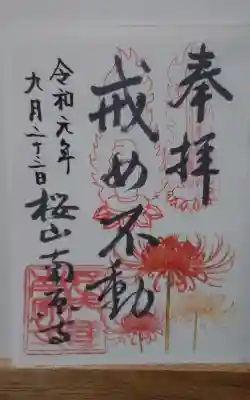 奉拝
戒め不動
桜山南原寺
令和元年
九月二十三日